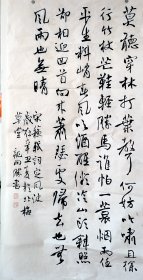 莫聽穿林打葉聲何妨吟嘯且徐
行竹杖芒鞋輕勝馬誰怕一蓑烟雨任
平生料峭春風吹酒醒微冷山頭斜照
却相迎回首向來蕭瑟處歸去也無
風雨也無晴
宋蘇軾詞定風波
歲於梅
草堂書